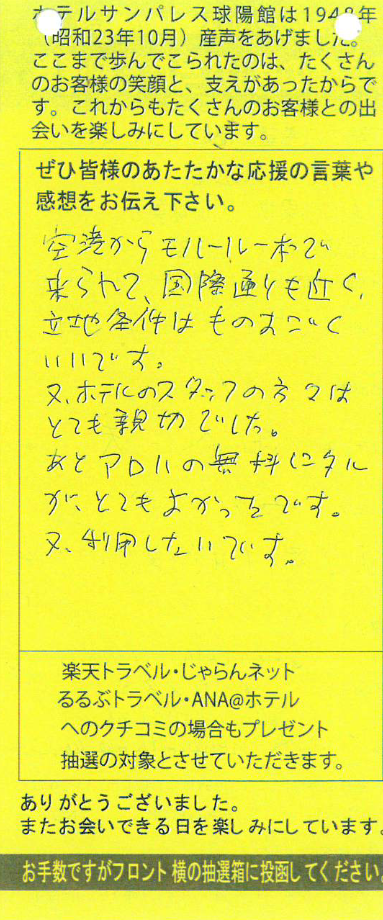 ホテルサンパレス球陽館は1948年
（昭和23年10月）産声をあげました。
ここまで歩んでこられたのは、たくさん
のお客様の笑顔と、支えがあったからで
す。これからもたくさんのお客様との出
会いを楽しみにしています。
ぜひ皆様のあたたかな応援の言葉や
感想をお伝え下さい。
空港からモルール一本で
来られて、国際通りも近く、
立地条件はものすごく
いいです。
又、ホテルのスタッフの方々は
とても親切でした。
あとアロハの無料レンタル
が、とてもよかったです。
又、利用したいです。
楽天トラベル・じゃらんネット
るるぶトラベル・ANA@ホテル
へのクチコミの場合もプレゼント
抽選の対象とさせていただきます。
ありがとうございました。
またお会いできる日を楽しみにしています。
お手数ですがフロント横の抽選箱に投函してください。